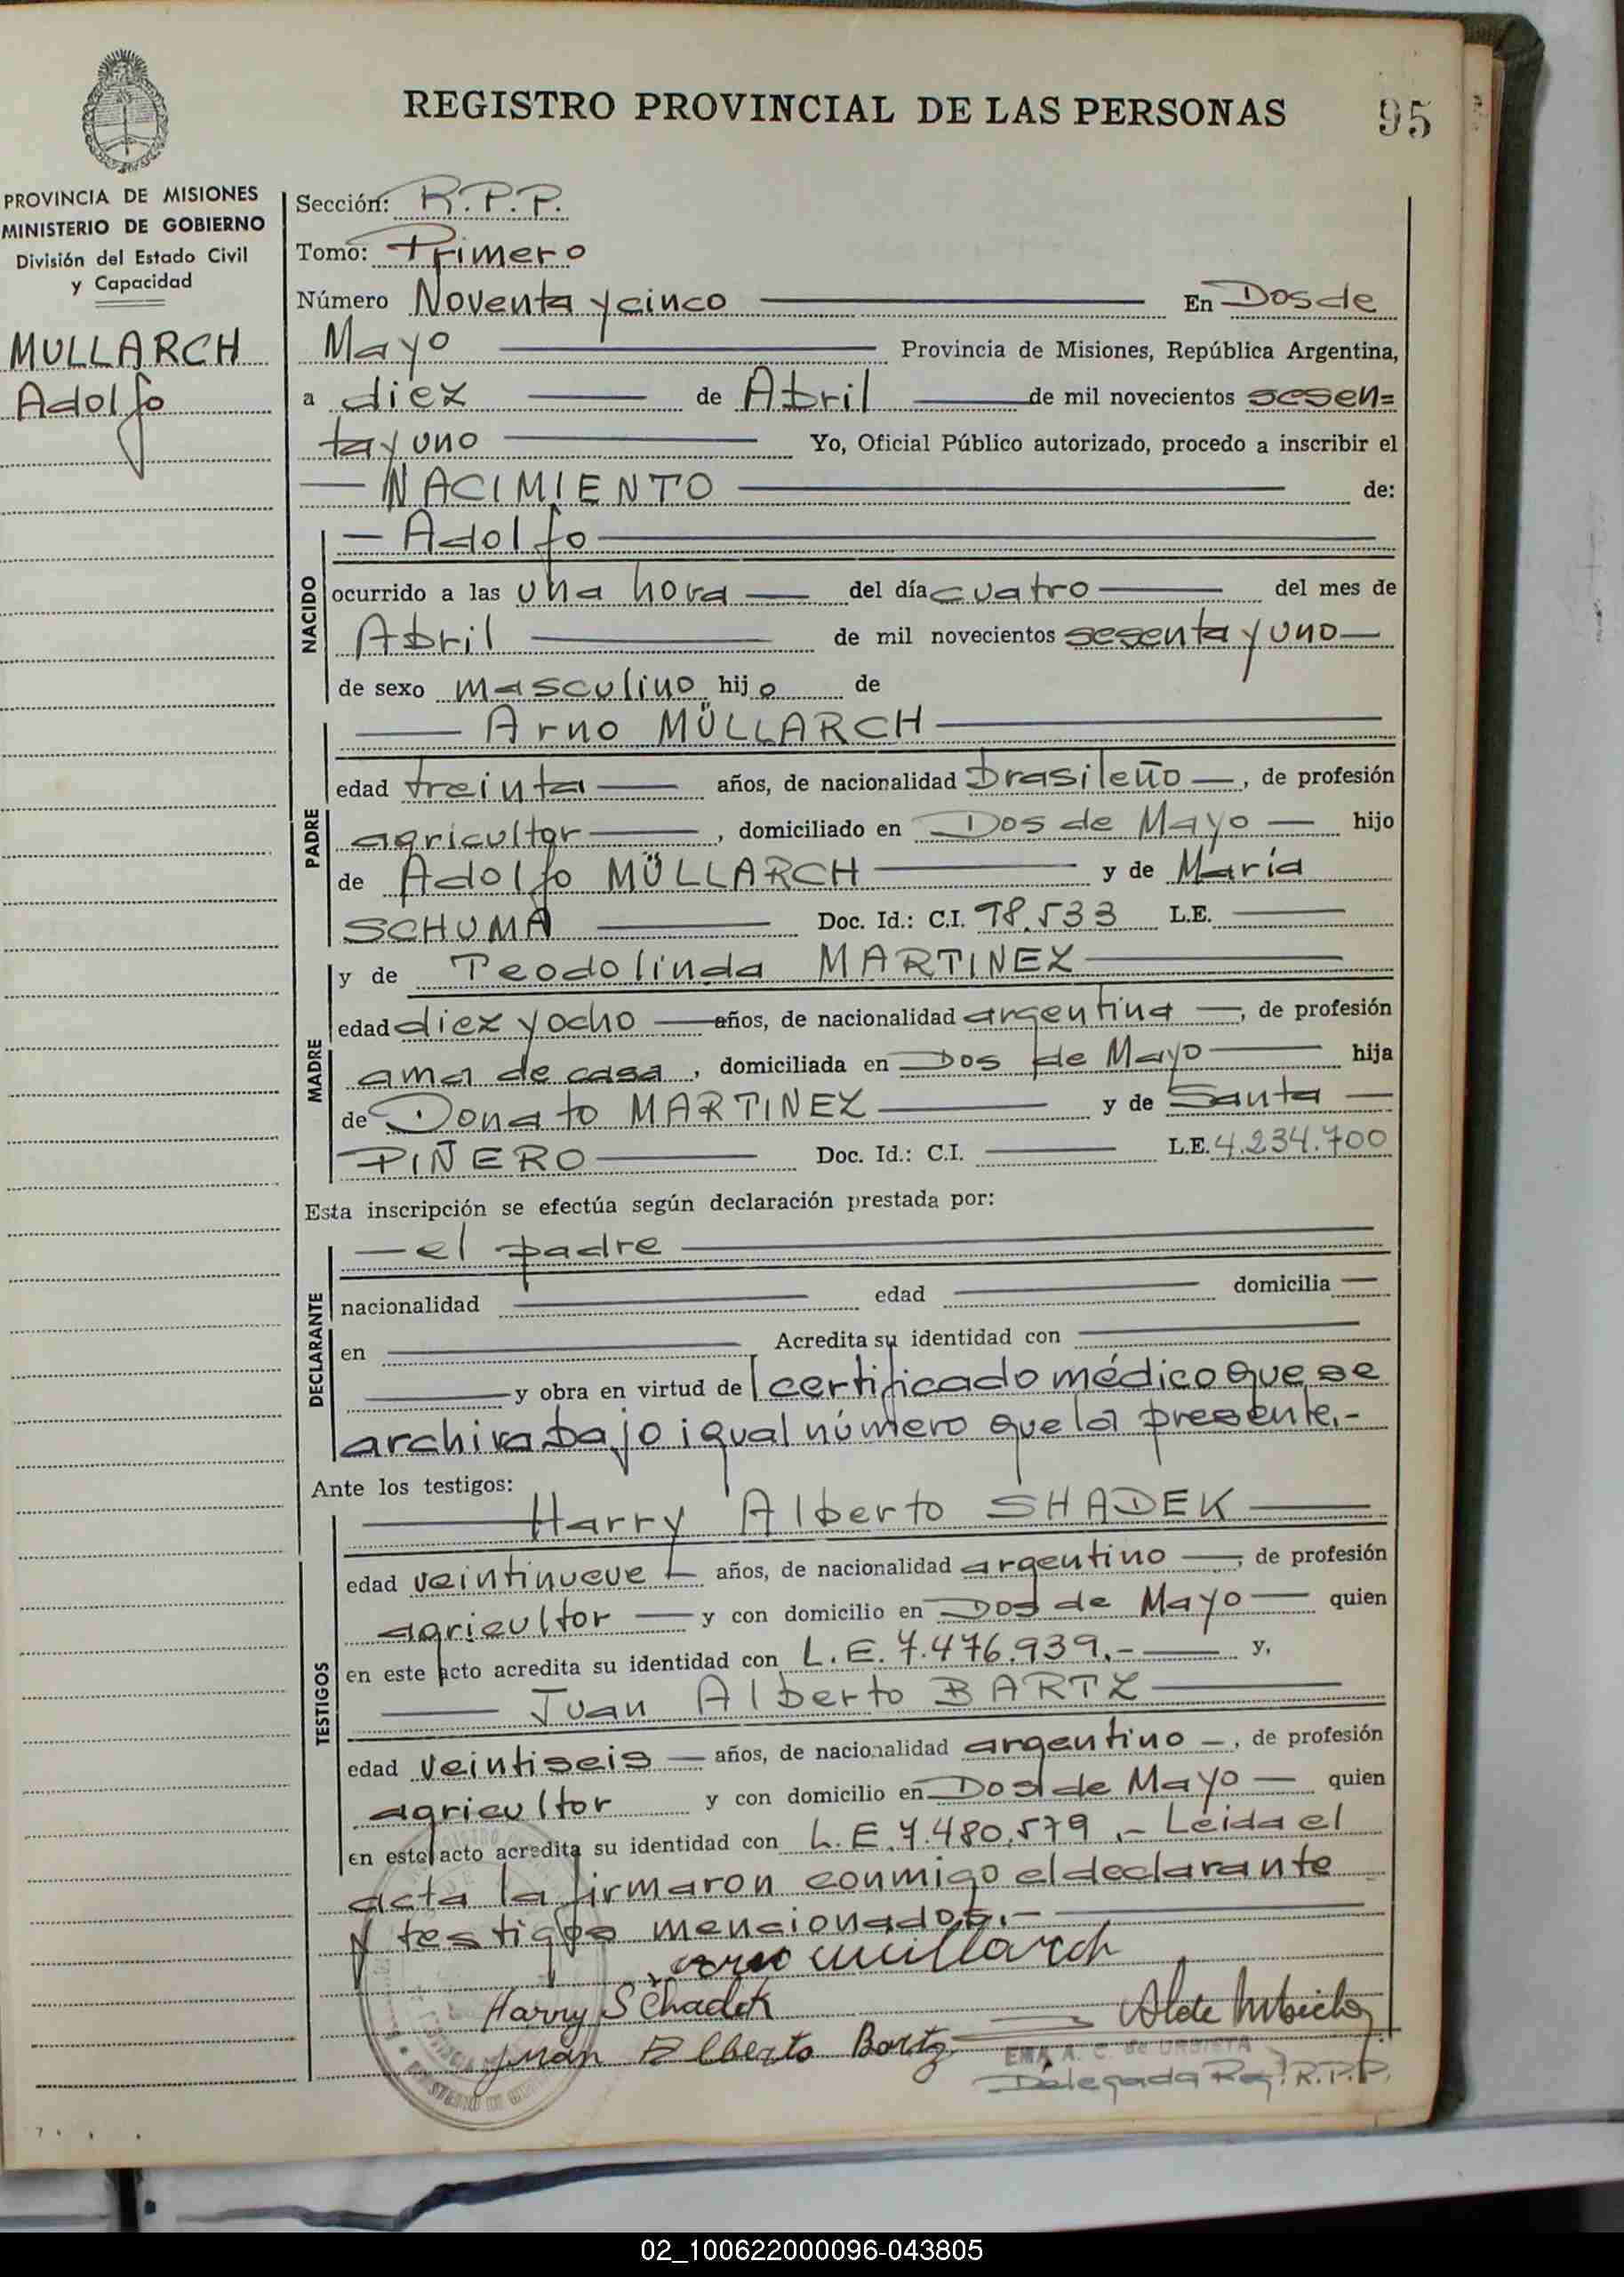 REGISTRO PROVINCIAL DE LAS PERSONAS 95
PROVINCIA DE MISIONES
MINISTERIO DE GOBIERNO
División del Estado Civil
y Capacidad
MULLARCH
Adolfo
Sección: R.P.P.
Tomo: Primero
Número Noventa y cinco En Dos de
Mayo Provincia de Misiones, República Argentina,
a diez de Abril de mil novecientos sesen=
ta y uno Yo, Oficial Público autorizado, procedo a inscribir el
NACIMIENTO de:
NACIDO
Adolfo
ocurrido a las una hora del día cuatro del mes de
Abril de mil novecientos sesenta y uno
de sexo masculino hijo de
PADRE
Arno MÜLLARCH
edad treinta años, de nacionalidad brasileño, de profesión
agricultor, domiciliado en Dos de Mayo hijo
de Adolfo MÜLLARCH y de María
SCHUMA Doc. Id.: C.I. 98.533 L.E.
MADRE
y de Teodolinda MARTINEZ
edad diez y ocho años, de nacionalidad argentina, de profesión
ama de casa, domiciliada en Dos de Mayo hija
de Donato MARTINEZ y de Santa
PIÑERO Doc. Id.: C.I. L.E. 4.234.700
Esta inscripción se efectúa según declaración prestada por:
DECLARANTE
el padre
nacionalidad edad domicilia
en Acredita su identidad con
y obra en virtud de certificado médico que se
archiva bajo igual número que la presente.-
Ante los testigos:
TESTIGOS
Harry Alberto SHADEK
edad veintinueve años, de nacionalidad argentino, de profesión
agricultor y con domicilio en Dos de Mayo quien
en este acto acredita su identidad con L.E. 7.476.939.- y,
Juan Alberto BARTZ
edad veintiseis años, de nacionalidad argentino, de profesión
agricultor y con domicilio en Dos de Mayo quien
en este acto acredita su identidad con L.E. 7.480.579.- Leida el
acta la firmaron conmigo el declarante
y testigos mencionados.-
arno müllarch
Harry SChadek
Juan Alberto Bartz
EMA A. C. de URBIETA
Delegada Reg. R.P.P.
02_100622000096-043805